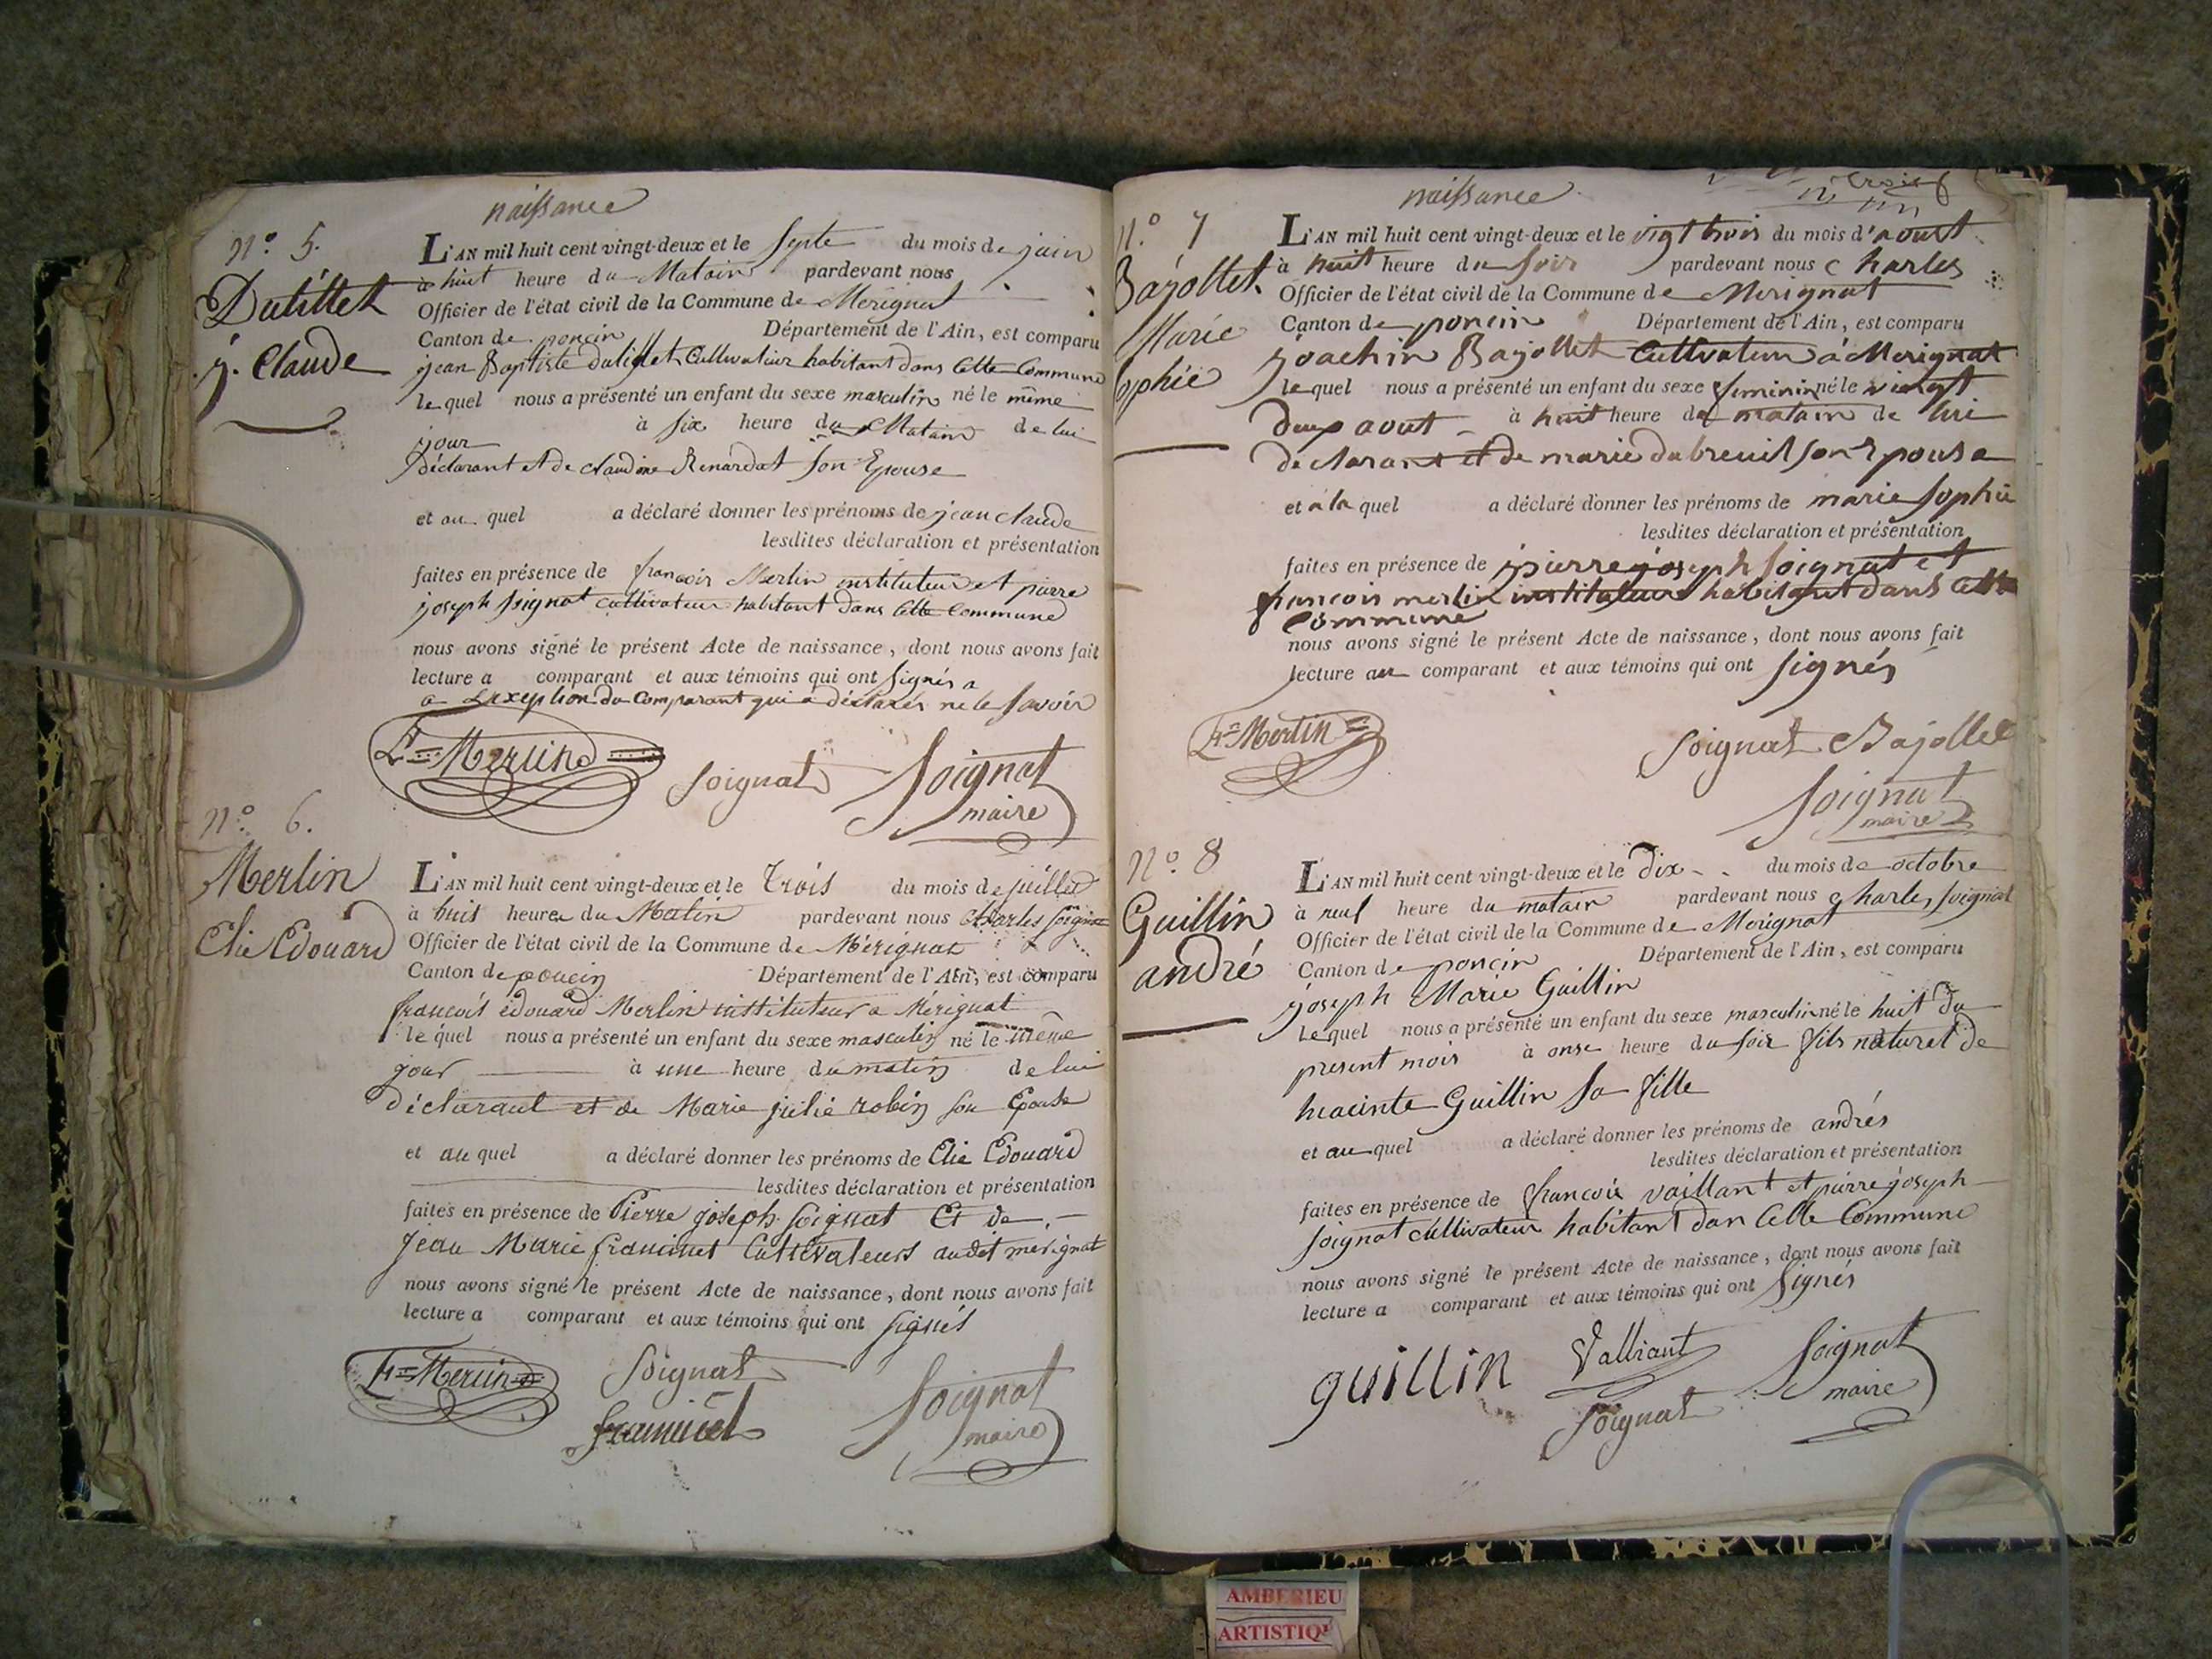 naissance
N.° 5.
Dutillet
j. Claude
L'AN mil huit cent vingt-deux et le septe du mois de juin
à huit heure du Matain pardevant nous
Officier de l'état civil de la Commune de Merignat
Canton de poncin Département de l'Ain, est comparu
jean Baptiste dutillet Cultivateur habitant dans Cette Commune
le quel nous a présenté un enfant du sexe masculin né le même
jour à six heure du Matain de lui
déclarant et de claudine Renardat son Epouse
et au quel a déclaré donner les prénoms de jean claude
lesdites déclaration et présentation
faites en présence de francois Merlin instituteur et pierre
joseph soignat cultivateur habitant dans Cette Commune
nous avons signé le présent Acte de naissance, dont nous avons fait
lecture a comparant et aux témoins qui ont signés a
a Lexeption du Comparant qui a déclarés ne le savoir
Merlin
soignat
Soignat
maire
N.° 6.
Merlin
Elie Edouard
L'AN mil huit cent vingt-deux et le trois du mois de juillet
à huit heure du Matin pardevant nous Charles soignat
Officier de l'état civil de la Commune de Mérignat
Canton de poncin Département de l'Ain, est comparu
francois édouard Merlin instituteur a Mérignat
le quel nous a présenté un enfant du sexe masculin né le même
jour à une heure du matin de lui
déclarant et de Marie julie robin son Epouse
et au quel a déclaré donner les prénoms de Elie Edouard
lesdites déclaration et présentation
faites en présence de Pierre joseph soignat Et de
Jean Marie franinet Cultivateurs audit merignat
nous avons signé le présent Acte de naissance, dont nous avons fait
lecture a comparant et aux témoins qui ont signés
Merlin
Soignat
franinet
Soignat
maire
naissance
N.° 7
Bajollet
Marie
sophie
L'AN mil huit cent vingt-deux et le vigt trois du mois d'aoust
à huit heure du soir pardevant nous charles
Officier de l'état civil de la Commune de Merignat
Canton de poncin Département de l'Ain, est comparu
joachin Bajollet Cultivateur à Merignat
le quel nous a présenté un enfant du sexe feminin né le vingt
deux aout à huit heure du matain de lui
declarant et de marie dubreuil son Epouse
et à la quel a déclaré donner les prénoms de marie sophie
lesdites déclaration et présentation
faites en présence de pierre joseph soignat et
francois merlin instituteur habitant dans cette
Commune
nous avons signé le présent Acte de naissance, dont nous avons fait
lecture au comparant et aux témoins qui ont signés
Merlin
soignat Bajollet
Soignat
maire
N.° 8
Guillin
andré
L'AN mil huit cent vingt-deux et le Dix du mois de octobre
à neuf heure du matain pardevant nous charles soignat
Officier de l'état civil de la Commune de Merignat
Canton de poncin Département de l'Ain, est comparu
joseph Marie Guillin
Le quel nous a présenté un enfant du sexe masculin né le huit du
present mois à onse heure du soir fils naturel de
hiacinte Guillin sa fille
et au quel a déclaré donner les prénoms de andrés
lesdites déclaration et présentation
faites en présence de francois vaillant et pierre joseph
soignat cultivateur habitant dan Cette Commune
nous avons signé le présent Acte de naissance, dont nous avons fait
lecture a comparant et aux témoins qui ont signés
guillin
Valliant
Soignat
maire
soignat
AMBERIEU
ARTISTIQ